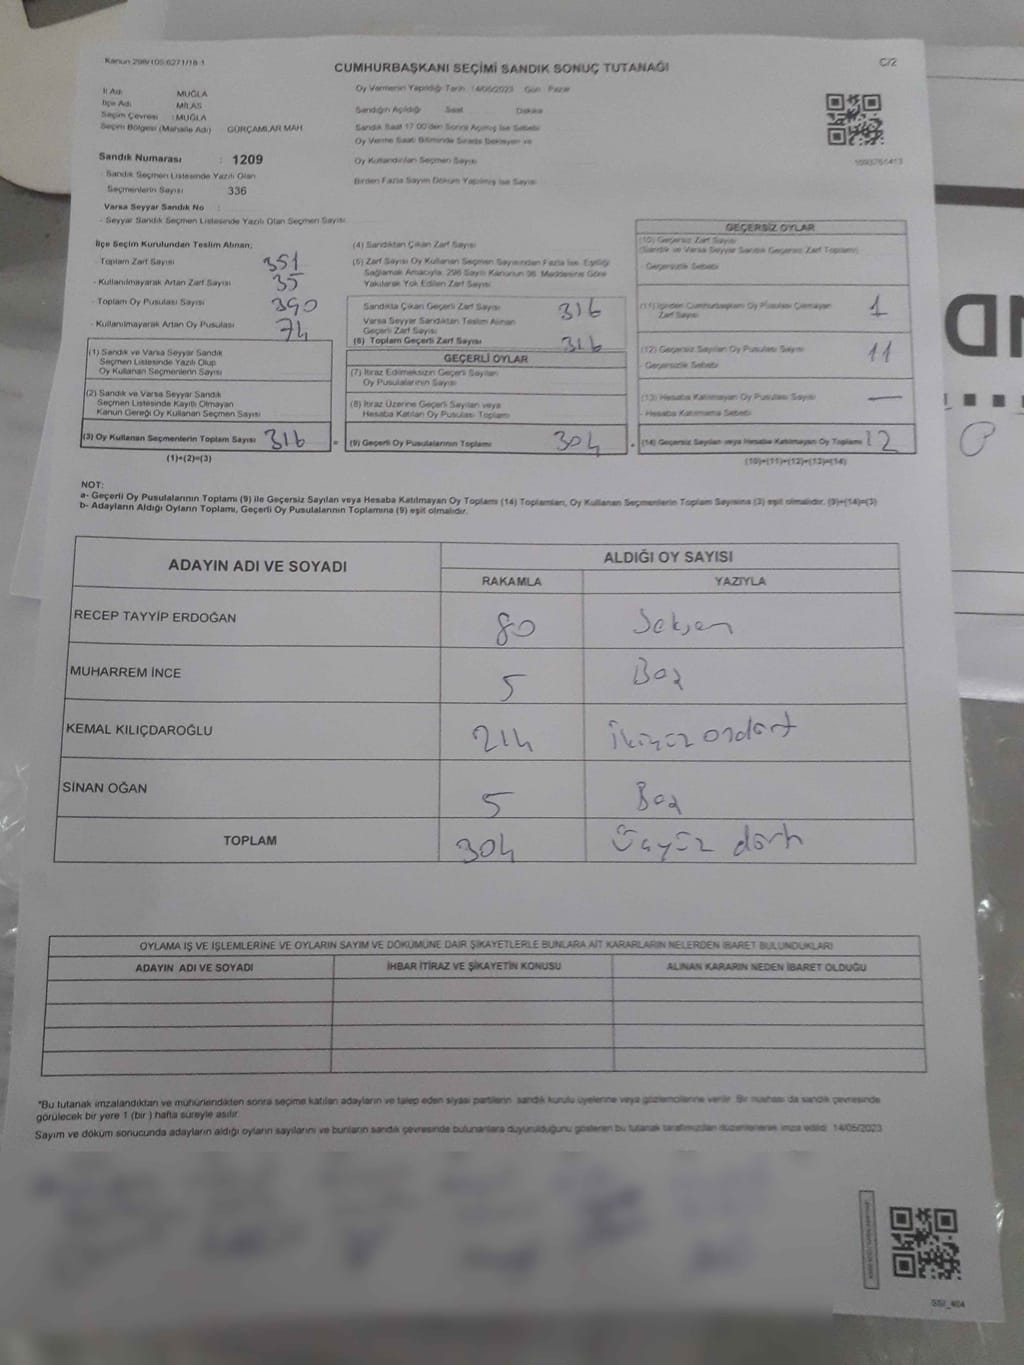 Kanun 298/105;6271/18-1
CUMHURBAŞKANI SEÇİMİ SANDIK SONUÇ TUTANAĞI
C/2
İl Adı MUĞLA
İlçe Adı MİLAS
Seçim Çevresi : MUĞLA
Seçim Bölgesi (Mahalle Adı) GÜRÇAMLAR MAH
Oy Vermenin Yapıldığı Tarih 14/05/2023 Gün Pazar
Sandığın Açıldığı Saat Dakika
Sandık Saat 17:00'den Sonra Açılmış İse Sebebi
Oy Verme Saati Bitiminde Sırada Bekleyen ve
Oy Kullandırılan Seçmen Sayısı
Birden Fazla Sayım Döküm Yapılmış İse Sayısı
Sandık Numarası : 1209
- Sandık Seçmen Listesinde Yazılı Olan
Seçmenlerin Sayısı 336
Varsa Seyyar Sandık No :
- Seyyar Sandık Seçmen Listesinde Yazılı Olan Seçmen Sayısı
İlçe Seçim Kurulundan Teslim Alınan;
- Toplam Zarf Sayısı 351
- Kullanılmayarak Artan Zarf Sayısı 35
- Toplam Oy Pusulası Sayısı 390
- Kullanılmayarak Artan Oy Pusulası 74
(1) Sandık ve Varsa Seyyar Sandık
Seçmen Listesinde Yazılı Olup
Oy Kullanan Seçmenlerin Sayısı
(2) Sandık ve Varsa Seyyar Sandık
Seçmen Listesinde Kayıtlı Olmayan
Kanun Gereği Oy Kullanan Seçmen Sayısı
(3) Oy Kullanan Seçmenlerin Toplam Sayısı 316
(1)+(2)=(3)
(4) Sandıktan Çıkan Zarf Sayısı
(5) Zarf Sayısı Oy Kullanan Seçmen Sayısından Fazla İse, Eşitliği
Sağlamak Amacıyla, 298 Sayılı Kanunun 98. Maddesine Göre
Yakılarak Yok Edilen Zarf Sayısı
Sandıkta Çıkan Geçerli Zarf Sayısı 316
Varsa Seyyar Sandıktan Teslim Alınan
Geçerli Zarf Sayısı
(6) Toplam Geçerli Zarf Sayısı 316
GEÇERLİ OYLAR
(7) İtiraz Edilmeksizin Geçerli Sayılan
Oy Pusulalarının Sayısı
(8) İtiraz Üzerine Geçerli Sayılan veya
Hesaba Katılan Oy Pusulası Toplamı
= (9) Geçerli Oy Pusulalarının Toplamı 304
GEÇERSİZ OYLAR
(10) Geçersiz Zarf Sayısı
(Sandık ve Varsa Seyyar Sandık Geçersiz Zarf Toplamı)
- Geçersizlik Sebebi
(11) İçinden Cumhurbaşkanı Oy Pusulası Çıkmayan
Zarf Sayısı 1
(12) Geçersiz Sayılan Oy Pusulası Sayısı 11
Geçersizlik Sebebi
(13) Hesaba Katılmayan Oy Pusulası Sayısı —
- Hesaba Katılmama Sebebi
+ (14) Geçersiz Sayılan veya Hesaba Katılmayan Oy Toplamı 12
(10)+(11)+(12)+(13)=(14)
NOT:
a- Geçerli Oy Pusulalarının Toplamı (9) ile Geçersiz Sayılan veya Hesaba Katılmayan Oy Toplamı (14) Toplamları, Oy Kullanan Seçmenlerin Toplam Sayısına (3) eşit olmalıdır. (9)+(14)=(3)
b- Adayların Aldığı Oyların Toplamı, Geçerli Oy Pusulalarının Toplamına (9) eşit olmalıdır.
ADAYIN ADI VE SOYADI
ALDIĞI OY SAYISI
RAKAMLA YAZIYLA
RECEP TAYYİP ERDOĞAN 80 Seksen
MUHARREM İNCE 5 Beş
KEMAL KILIÇDAROĞLU 214 İkiyüz ondört
SİNAN OĞAN 5 Beş
TOPLAM 304 Üçyüz dört
OYLAMA İŞ VE İŞLEMLERİNE VE OYLARIN SAYIM VE DÖKÜMÜNE DAİR ŞİKAYETLERLE BUNLARA AİT KARARLARIN NELERDEN İBARET BULUNDUKLARI
ADAYIN ADI VE SOYADI İHBAR İTİRAZ VE ŞİKAYETİN KONUSU ALINAN KARARIN NEDEN İBARET OLDUĞU
"Bu tutanak imzalandıktan ve mühürlendikten sonra seçime katılan adayların ve talep eden siyasi partilerin sandık kurulu üyelerine veya gözlemcilerine verilir. Bir nüshası da sandık çevresinde
görülecek bir yere 1 (bir ) hafta süreyle asılır
Sayım ve döküm sonucunda adayların aldığı oyların sayılarını ve bunların sandık çevresinde bulunanlara duyurulduğunu gösteren bu tutanak tarafımızdan düzenlenerek imza edildi. 14/05/2023
SSI_404